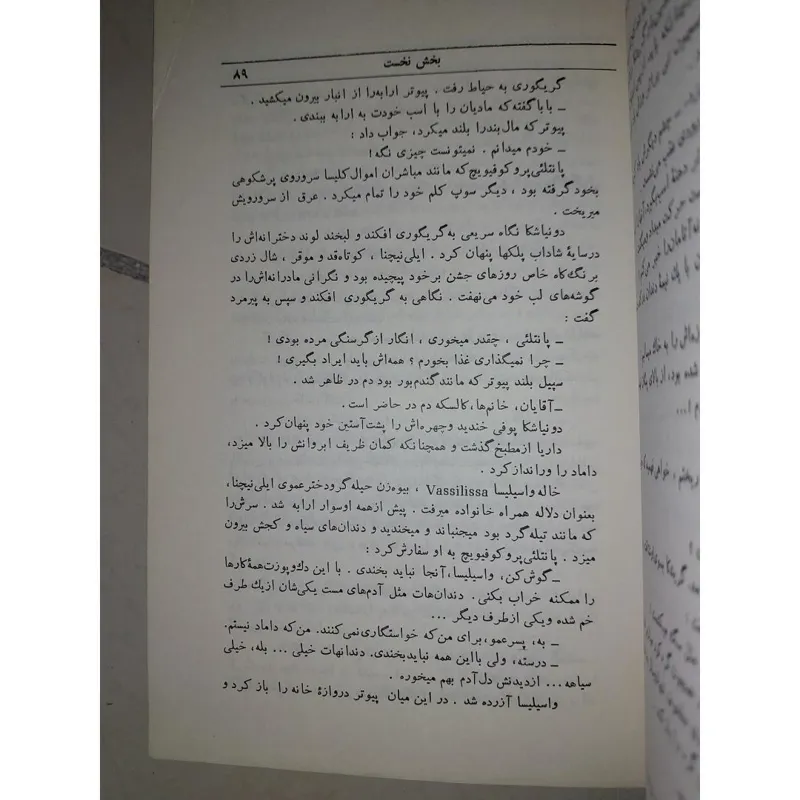 بخش نخست
۸۹
گریگوری به حیاط رفت . پیوتر ارابه‌را از انبار بیرون میکشید .
ــ بابا گفته که مادیان را با اسب خودت به ارابه ببندی .
پیوتر که مال‌بند را بلند میکرد، جواب داد :
ــ خودم میدانم . نمیتونست چیزی نگه !
پانتلئی پروکوفیویچ که مانند مباشران اموال کلیسا سروروی پرشکوهی
بخود گرفته بود ، دیگر سوپ کلم خود را تمام میکرد . عرق از سرورویش
میریخت .
دونیاشکا نگاه سریعی به گریگوری افکند و لبخند لوند دخترانه‌اش را
درسایهٔ شاداب پلکها پنهان کرد . ایلی‌نیچنا ، کوتاه‌قد و موقر ، شال زردی
برنگ کاه خاص روزهای جشن برخود پیچیده بود و نگرانی مادرانه‌اش را در
گوشه‌های لب خود می‌نهفت . نگاهی به گریگوری افکند و سپس به پیرمرد
گفت :
ــ پانتلئی ، چقدر میخوری ، انگار از گرسنگی مرده بودی !
ــ چرا نمیگذاری غذا بخورم ؟ همه‌اش باید ایراد بگیری !
سبیل بلند پیوتر که مانند گندم بور بود دم در ظاهر شد .
ــ آقایان، خانم‌ها، کالسکه دم در حاضر است .
دونیاشکا پوفی خندید و چهره‌اش را پشت آستین خود پنهان کرد .
داریا از مطبخ گذشت و همچنانکه کمان ظریف ابروانش را بالا میزد،
داماد را ورانداز کرد .
خاله واسیلیسا Vassilissa ، بیوه‌زن حیله‌گر و دخترعموی ایلی‌نیچنا،
بعنوان دلاله همراه خانواده میرفت . پیش از همه او سوار ارابه شد . سرش را
که مانند تیله گرد بود میجنباند و میخندید و دندان‌های سیاه و کجش بیرون
میزد . پانتلئی پروکوفیویچ به او سفارش کرد :
ــ گوش کن، واسیلیسا، آنجا نباید بخندی . با این دک و پوزت همهٔ کارها
را ممکنه خراب بکنی . دندان‌هات مثل آدم‌های مست یکی‌شان از یک طرف
خم شده و یکی از طرف دیگر ...
ــ به، پسرعمو، برای من که خواستگاری نمی‌کنند. من که داماد نیستم.
ــ درسته، ولی با این همه نباید بخندی. دندانهات خیلی ... بله، خیلی
سیاهه ... از دیدنش دل آدم بهم میخوره .
واسیلیسا آزرده شد . در این میان پیوتر دروازهٔ خانه را باز کرد و